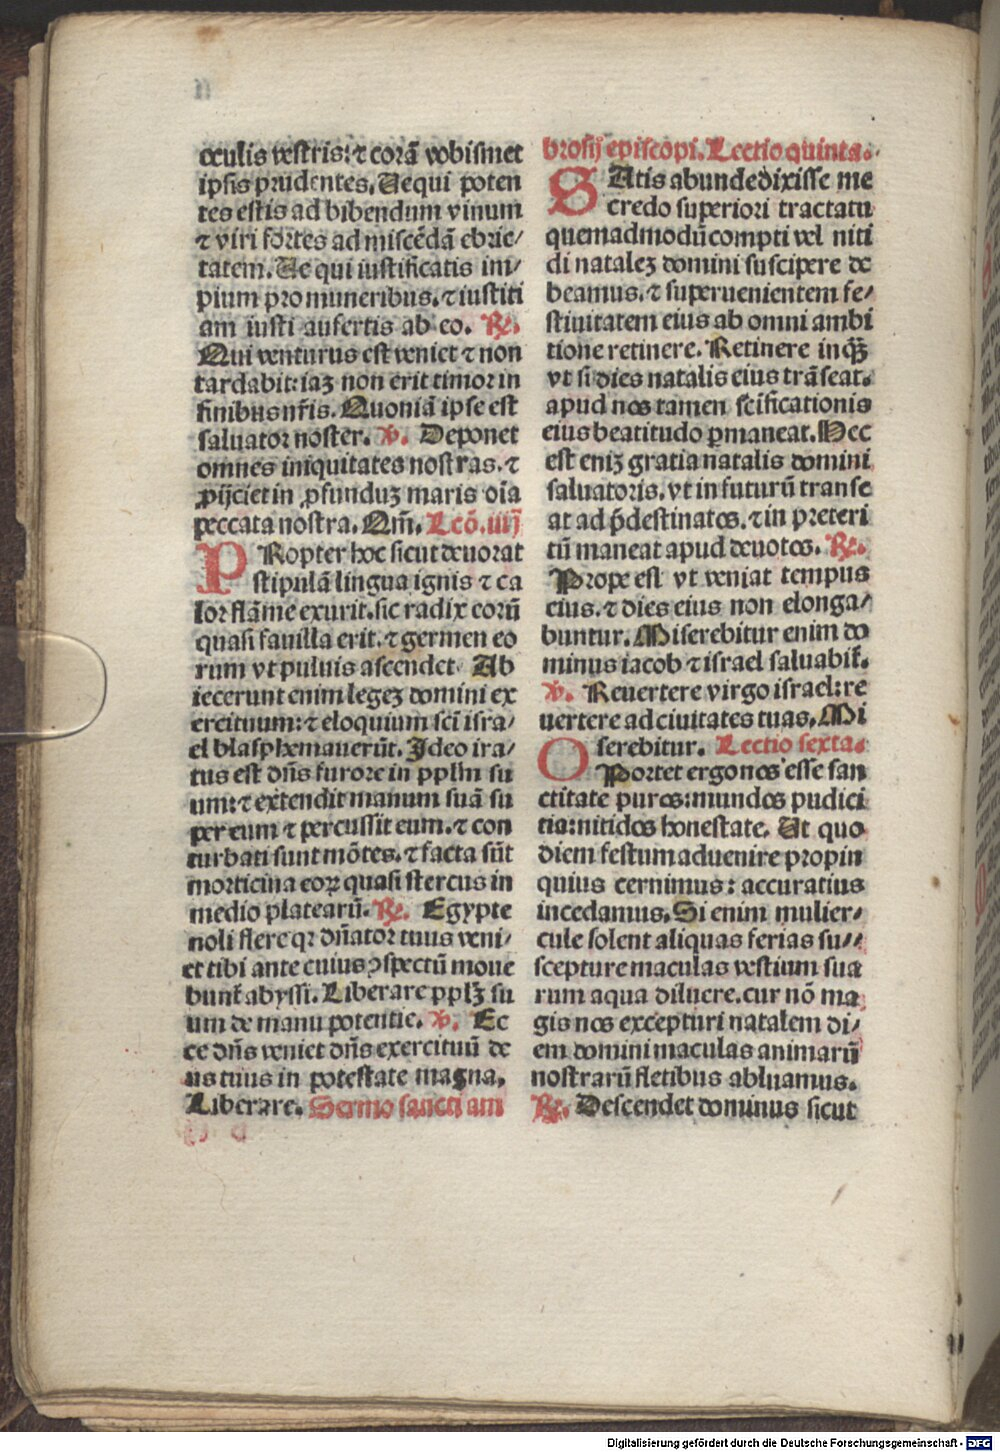 oculis vestris: ⁊ corā vobismet
ipsis prudentes. Ue qui poten
tes estis ad bibendum vinum
⁊ viri fortes ad miscēdā ebrie/
tatem. Ue qui iustificatis im/
pium pro muneribus. ⁊ iustiti
am iusti aufertis ab eo. ℟.
Qui venturus est veniet ⁊ non
tardabit: iaꝫ non erit timor in
finibus nr̄is. Quoniā ipse est
saluator noster. ℣. Deponet
omnes iniquitates nostras. ⁊
ꝓijciet in ꝓfunduꝫ maris oīa
peccata nostra. Qm̄. Lcō. iiij
PRopter hoc sicut deuorat
stipulā lingua ignis ⁊ ca
lor flāme exurit. sic radix eorū
quasi fauilla erit. ⁊ germen eo
rum vt puluis ascendet. Ab
iecerunt enim legeꝫ domini ex
ercituum: ⁊ eloquium scī isra/
el blasphemauerūt. Ideo ira/
tus est dn̄s furore in pplm̄ su
um: ⁊ extendit manum suā su
per eum ⁊ percussit eum. ⁊ con
turbati sunt mōtes. ⁊ facta sūt
morticina eoꝝ quasi stercus in
medio platearū. ℟. Egypte
noli flere qꝛ dn̄ator tuus veni/
et tibi ante cuius ꝯspectū moue
bunt̄ abyssi. Liberare pplꝫ su
um de manu potentie. ℣. Ec
ce dn̄s veniet dn̄s exercituū de
us tuus in potestate magna.
Liberare. Sermo sancti am
brosij episcopi. Lectio quinta.
SAtis abunde dixisse me
credo superiori tractatu
quemadmodū compti vel niti
di nataleꝫ domini suscipere de
beamus. ⁊ superuenientem fe/
stiuitatem eius ab omni ambi
tione retinere. Retinere inqꝫ̄
vt si dies natalis eius trāseat.
apud nos tamen scīficationis
eius beatitudo ꝑmaneat. Hec
est eniꝫ gratia natalis domini
saluatoris. vt in futurū transe
at ad p̄destinatos. ⁊ in preteri
tū maneat apud deuotos. ℟.
Prope est vt veniat tempus
eius. ⁊ dies eius non elonga/
buntur. Miserebitur enim do
minus iacob ⁊ israel saluabit̄.
℣. Reuertere virgo israel: re
uertere ad ciuitates tuas. Mi
serebitur. Lectio sexta.
OPortet ergo nos esse san
ctitate puros: mundos pudici
tia: nitidos honestate. Ut quo
diem festum aduenire propin
quius cernimus: accuratius
incedamus. Si enim mulier/
cule solent aliquas ferias su//
scepture maculas vestium sua
rum aqua diluere. cur nō ma
gis nos excepturi natalem di/
em domini maculas animarū
nostrarū fletibus abluamus.
℟. Descendet dominus sicut
Digitalisierung gefördert durch die Deutsche Forschungsgemeinschaft - DFG